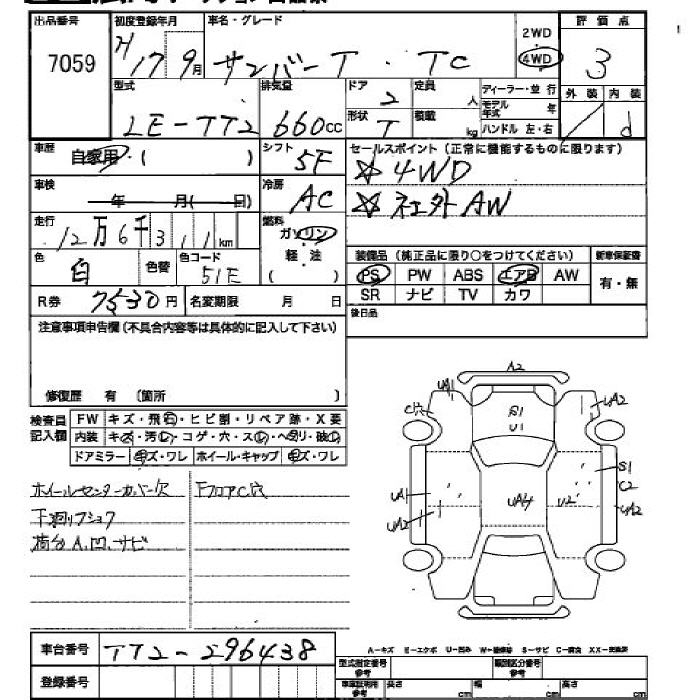 出品番号 初度登録年月 車名・グレード 2WD 評価点
7059 H17 9月 サンバーT . TC 4WD 3
外装 内装
型式 排気量 ドア 2 定員 人 ディーラー・並行
モデル年式 年
d
LE-TT2 660cc 形状 T 積載 kg ハンドル 左・右
車歴 自家用・( ) シフト 5F セールスポイント(正常に機能するものに限ります)
☆4WD
車検 年 月( 日) 冷房 AC ☆社外AW
走行 12万6千311km 燃料 ガソリン
軽・油
( )
装備品(純正品に限り○をつけてください) 新車保証書
色 白 色替 色コード 51E PS PW ABS エアB AW 有・無
R券 7530円 名変期限 月 日 SR ナビ TV カワ
注意事項申告欄(不具合内容等は具体的に記入して下さい) 後日品
修復歴 有 (箇所 )
検査員記入欄 FW キズ・飛石・ヒビ割・リペア跡・X要
内装 キズ・汚レ・コゲ・穴・スレ・ヘタリ・破レ
ドアミラー キズ・ワレ ホイール・キャップ キズ・ワレ
ホイールセンターカバー欠 FフロアC穴
下廻りフショク
荷台A.凹.サビ
A2
UA1
UA2
C穴
S1
U1
S1
C2
UA1
UA4
U2
UA2
UA2
車台番号 TT2-296438
A-キズ E-エクボ U-凹み W-補修跡 S-サビ C-腐食 XX-交換済
登録番号
型式指定番号参考 類別区分番号参考
車庫証明用参考 長さ cm 幅 cm 高さ cm